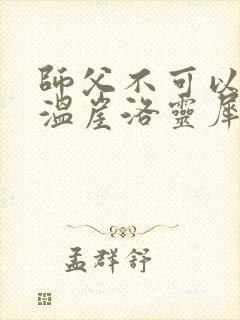 師父不可以
溫崖洛靈犀
孟群舒